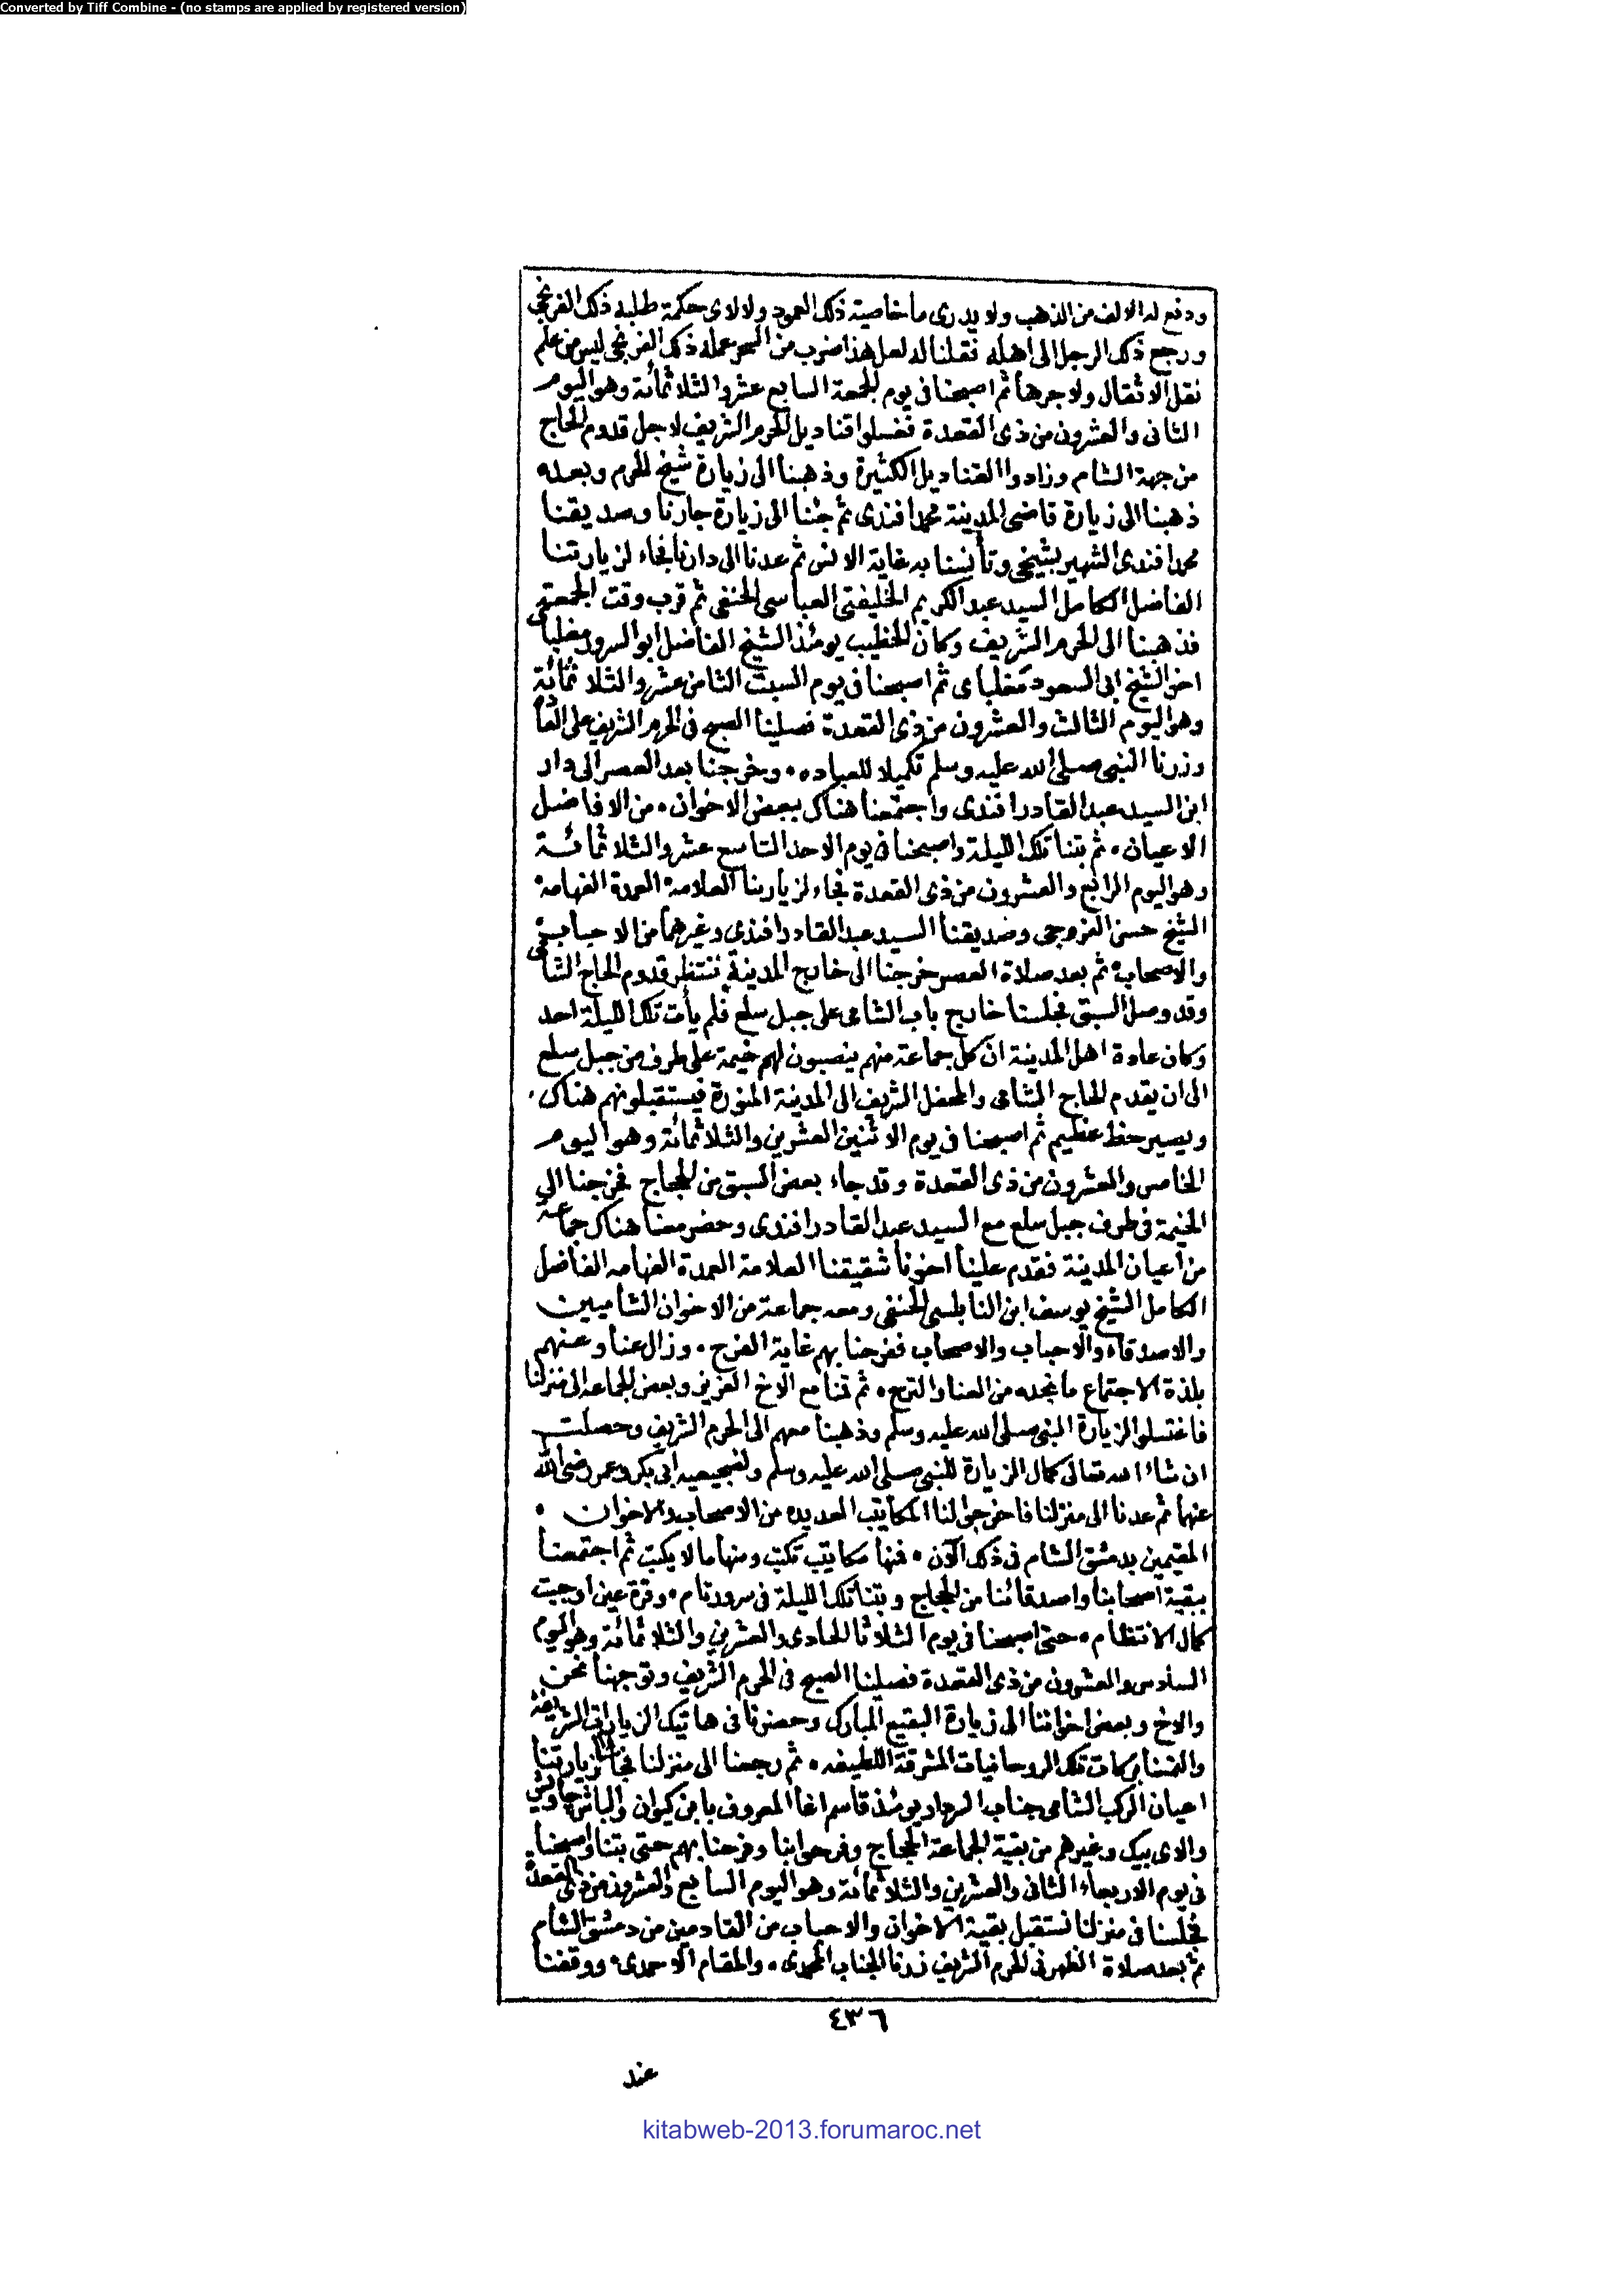 Converted by Tiff Combine - (no stamps are applied by registered version)
ودفع له الالف من الذهب ولا يدرى ما خاصية ذلك العمود ولا لاى حكمة طلبه ذلك الفرنجى
ورجع ذلك الرجل الى اهله فقلنا له لعل هذا ضرب من السحر عمله ذلك الفرنجى ليس من علم
نقل الاثقال ولا جرها ثم اصبحنا فى يوم الجمعة السابع عشر والثلاثمائة وهو اليوم
الثانى والعشرون من ذى القعدة فغسلوا قناديل الحرم الشريف لاجل قدوم الحاج
من جهة الشام وزادوا القناديل الكثيرة وذهبنا الى زيارة شيخ الحرم وبعده
ذهبنا الى زيارة قاضى المدينة محمد افندى ثم جئنا الى زيارة جارنا وصديقنا
محمد افندى الشهير بشيخى وتأنسنا به غاية الانس ثم عدنا الى دارنا فجاء لزيارتنا
الفاضل الكامل السيد عبد الكريم الخليفتى العباسى الحنفى ثم قرب وقت الجمعة
فذهبنا الى الحرم الشريف وكان الخطيب يومئذ الشيخ الفاضل ابو السرور مغلباى
اخو الشيخ ابى السعود مغلباى ثم اصبحنا فى يوم السبت الثامن عشر والثلاثمائة
وهو اليوم الثالث والعشرون من ذى القعدة فصلينا الصبح فى الحرم الشريف على العادة
وزرنا النبى صلى الله عليه وسلم تكميلا للعباده، وخرجنا بعد العصر الى دار
ابن السيد عبد القادر افندى واجتمعنا هناك ببعض الاخوان، من الافاضل
الاعيان، ثم بتنا تلك الليلة واصبحنا فى يوم الاحد التاسع عشر والثلاثمائة
وهو اليوم الرابع والعشرون من ذى القعدة فجاء لزيارتنا العلامة العمدة الفهامة
الشيخ حسن وصديقنا السيد عبد القادر افندى وغيرهما من الاحباب
والاصحاب ثم بعد صلاة العصر خرجنا الى خارج المدينة ننتظر قدوم الحاج الشامى
وقد وصل السبق فجلسنا خارج باب الشامى على جبل سلع فلم يأت تلك الليلة احد
وكان عادة اهل المدينة ان كل جماعة منهم ينصبون لهم خيمة على طرف من جبل سلع
الى ان يقدم الحاج الشامى والمحفل الشريف الى المدينة المنورة فيستقبلونهم هناك،
ويصير حظ عظيم ثم اصبحنا فى يوم الاثنين العشرين والثلاثمائة وهو اليوم
الخامس والعشرون من ذى القعدة وقد جاء بعض السبق من الحجاج فخرجنا الى
الخيمة فى طرف جبل سلع مع السيد عبد القادر افندى وحضر معنا هناك جماعة
من اعيان المدينة فقدم علينا اخونا شقيقنا العلامة العمدة الفهامه الفاضل
الكامل الشيخ يوسف ابن النابلسى الحنفى ومعه جماعة من الاخوان الشاميين
والاصدقاء والاحباب والاصحاب ففرحنا بهم غاية الفرح، وزال عنا وعنهم
بلذة الاجتماع ما نجده من العنا والترح، ثم قمنا مع الاخ العزيز وبعض الجماعة الى منزلنا
فاغتسلوا لزيارة النبى صلى الله عليه وسلم وذهبنا معهم الى الحرم الشريف وحصلت
ان شاء الله تعالى كمال الزيارة للنبى صلى الله عليه وسلم ولضجيعيه ابى بكر وعمر رضى الله
عنهما ثم عدنا الى منزلنا فاخرجوا لنا المكاتيب العديده من الاصحاب والاخوان ،
المقيمين بدمشق الشام فى ذلك الآن، فمنها مكاتيب تكتب ومنها ما لا يكتب ثم اجتمعنا
ببقية اصحابنا واصدقائنا من الحجاج وبتنا تلك الليلة فى سرور تام، وقرة عين اوجبت
كمال الانتظام، حتى اصبحنا فى يوم الثلاثا الحادى والعشرين والثلاثمائة وهو اليوم
السادس والعشرون من ذى القعدة فصلينا الصبح فى الحرم الشريف وتوجهنا نحن
والاخ وبعض اخواننا الى زيارة البقيع المبارك وحضرنا فى هاتيك الزيارات الشريفة
والتمسنا بركات تلك الروحانيات المشرقة اللطيفه، ثم رجعنا الى منزلنا فجاء لزيارتنا
اعيان الركب الشامى جناب يومئذ قاسم اغا المعروف بابن كيوان والباش جاويش
والاى بيك وغيرهم من بقية الجماعة الحجاج وفرحوا بنا وفرحنا بهم حتى بتنا واصبحنا
فى يوم الاربعاء الثانى والعشرين والثلاثمائة وهو اليوم السابع والعشرون من ذى القعدة
فجلسنا فى منزلنا نستقبل بقية الاخوان والاحباب من القادمين من دمشق الشام
ثم بعد صلاة الظهر فى الحرم الشريف زرنا الجناب المحمدى، والمقام الاحمدى، ووقفنا
٤٣٦
عند
kitabweb-2013.forumaroc.net